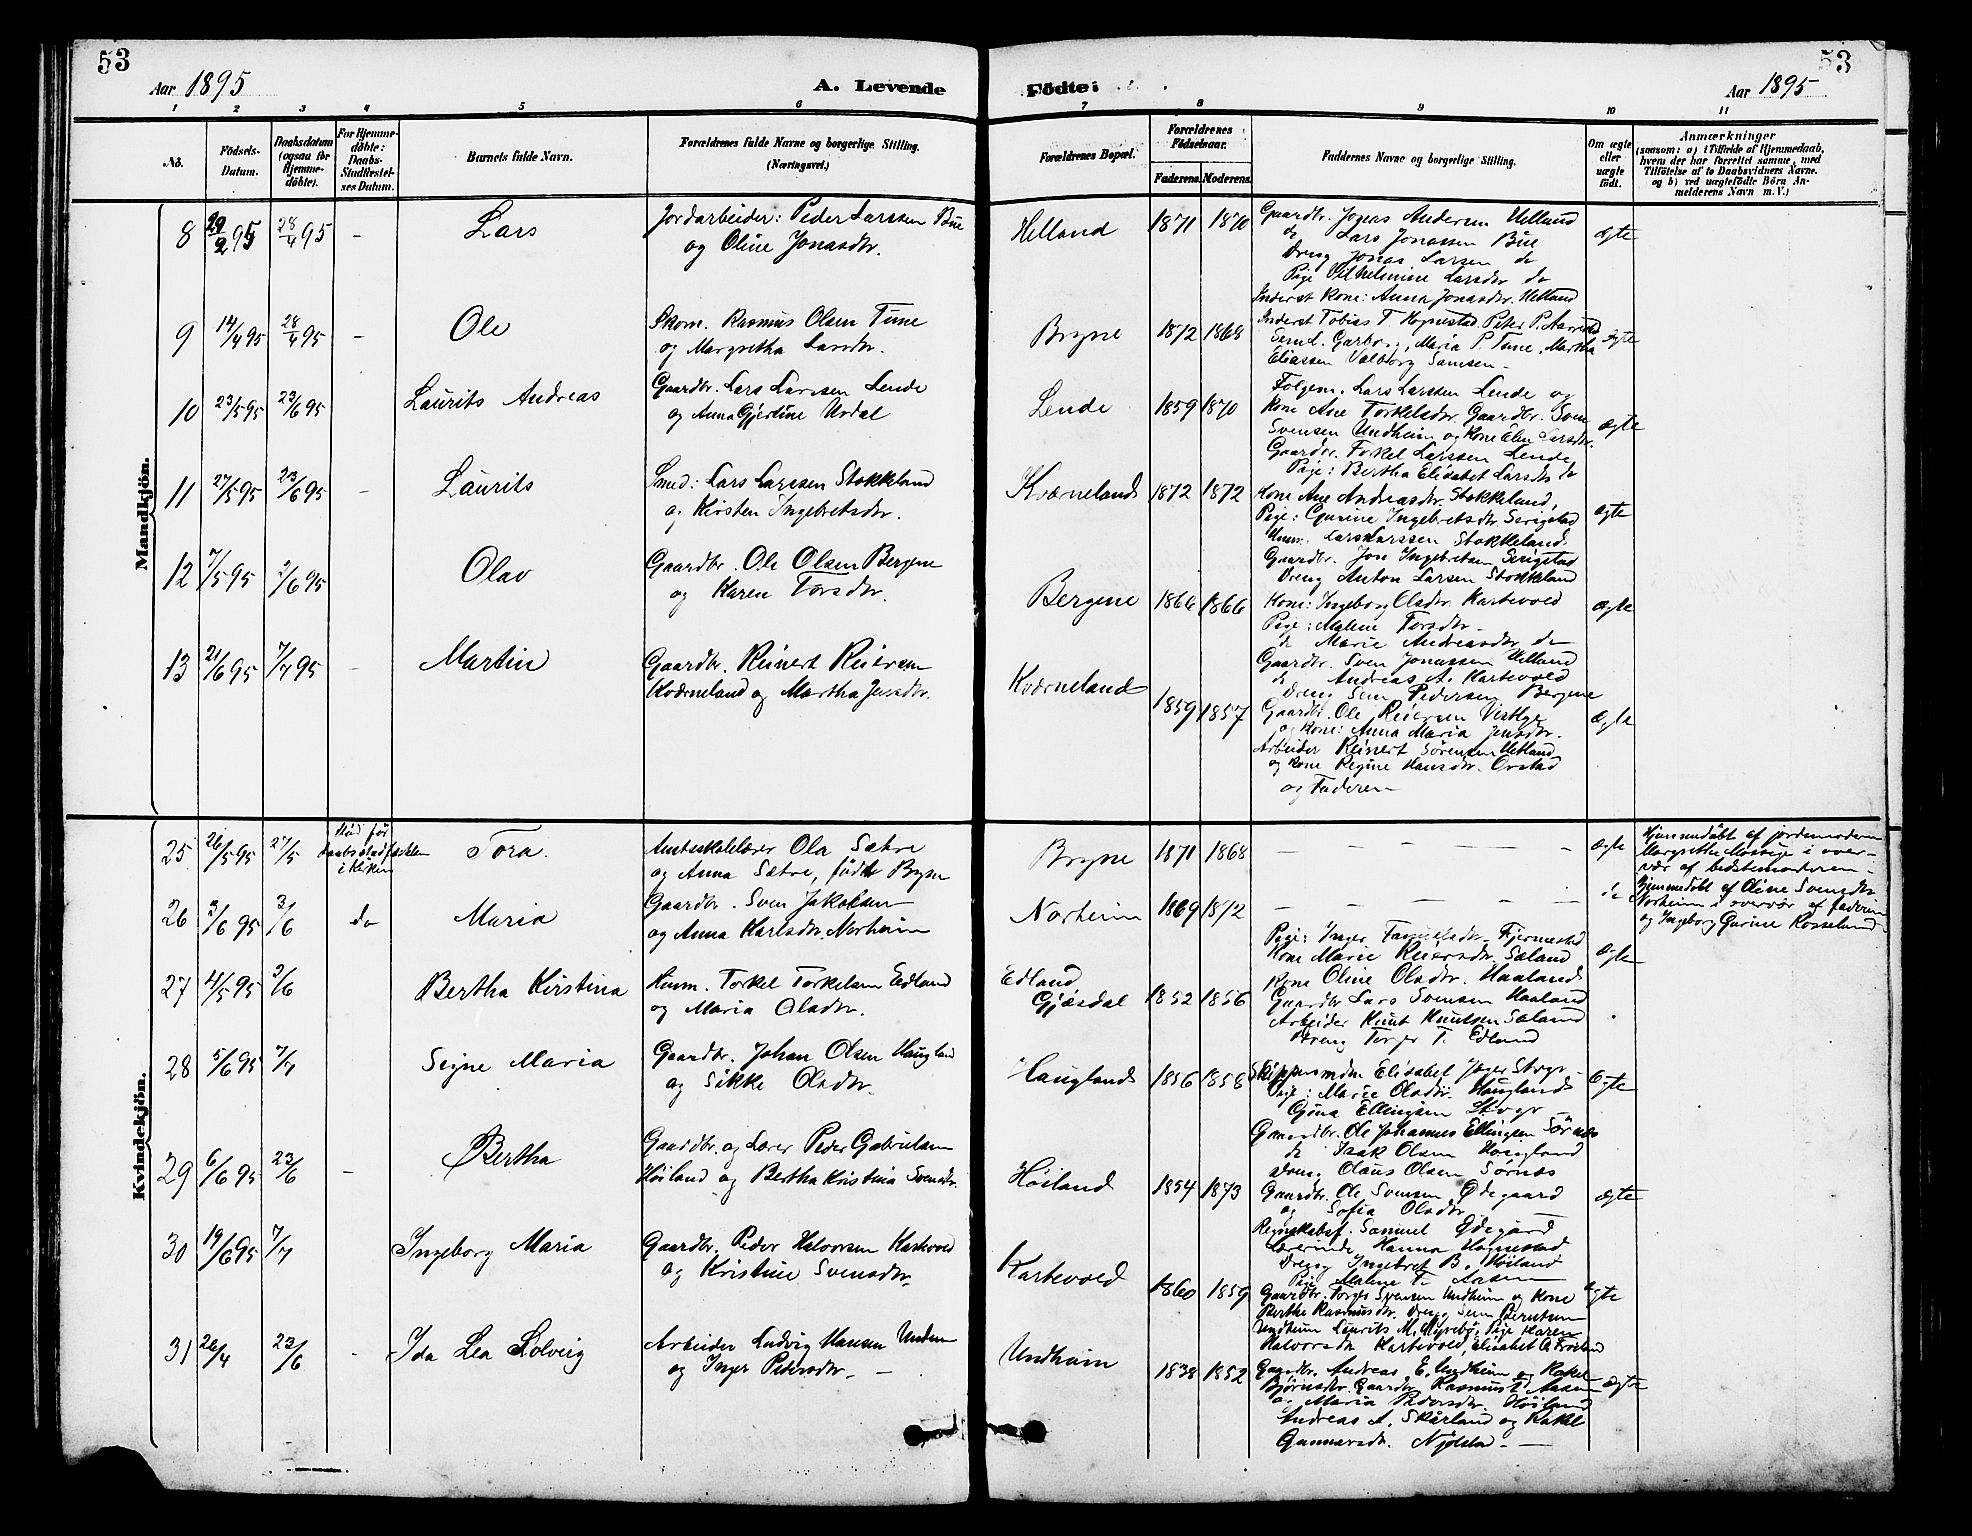 53
Aar 1895
A. Levende
1 2 3 4 5 6
No.
Födsels-Datum.
Daabsdatum (ogsaa for Hjemmedöbte).
For Hjemmedöbte: Daabs-Stadfæstelses Datum.
Barnets fulde Navn.
Forældrenes fulde Navne og borgerlige Stilling.
(Næringsvei.)
Mandkjön.
8 28/4 95 - Lars
Jordarbeider: Peder Larssen Bue
og Oline Jonasdtr.
9 14/4 95 28/4 95 - Ole
Skom. Rasmus Olsen Tune
og Margretha Larsdtr.
10 23/5 95 23/6 95 Laurits Andreas
Gaardbr. Lars Larssen Lende
og Anna Gjertine Urdal
11 27/5 95 23/6 95 - Laurits
Smed: Lars Larssen Stokkeland
og Kirsten Ingebretsdtr.
12 7/5 95 2/6 95 Olav
Gaardbr. Ole Olsen Bergene
og Karen Torsdtr.
13 21/6 95 7/7 95 - Martin
Gaardbr. Reinert Reiersen
Kværneland og Martha Jensdtr.
Kvindekjön.
25 26/5 95 27/5 død før daabsstadfæstelsen i Kirken Tora.
Amtsskolelærer Ola Sætre
og Anna Sætre, født Bryne
26 3/6 95 3/6 do Maria
Gaardbr. Sven Jakobsen
og Anna Karlsdtr. Norheim
27 4/5 95 2/6 Bertha Kirstina
Husm. Torkel Torkelsen Edland
og Maria Olsdtr.
28 5/6 95 7/7 Signe Maria
Gaardbr. Johan Olsen Haugland
og Sikke Olsdtr.
29 6/6 95 23/6 - Bertha
Gaardbr. og Lærer Peder Gabrielsen
Høiland og Bertha Kristina Svensdtr.
30 19/6 95 7/7 Ingeborg Maria
Gaardbr. Peder Halvorsen Kartevold
og Kristine Svensdtr.
31 26/4 23/6 - Ida Lea Solveig
Arbeider Ludvig Hansen Undem
og Inger Pedersdtr. -
53
Födte:
Aar 1895
7 8 9 10 11
Forældrenes Bopæl.
Forældrenes Födselsaar.
Faderens. Moderens.
Faddernes Navne og borgerlige Stilling.
Om ægte eller uægte födt.
Anmærkninger
(saasom: a) i Tilfælde af Hjemmedaab,
hvem der har forrettet samme, med
Tilföielse af to Daabsvidners Navne.
og b) ved uægtefödte Börn Anmelderens Navn m. V.)
Helland 1871 1870 ægte
Gaardbr. Jonas Andersen Helland
do Lars Jonassen Bue
Dreng Jonas Larsen do
Pige Vilhelmine Larsdtr do
Inderst Kone: Anna Jonasdtr. Helland
Bryne 1872 1868 ægte
Inderst Tobias T. Hognestad, Peter P. Aarrestad
Garborg, Maria P. Tune, Martha
Eliassen Valborg Samsen -
Lende 1859 1870 ægte
Folgem. Lars Larssen Lende og
Kone Ane Torkelsdtr. Gaardbr. Sven
Svensen Undheim og Kone Elen Larsdtr.
Gaardbr. Torkel Larssen Lende
Pige: Bertha Elisabet Larsdtr do
Kværneland 1872 1872 ægte
Kone Ane Andreasdtr. Stokkeland,
Pige: Gurine Ingebretsdtr. Serigstad
Unm. Lars Larssen Stokkeland.
Gaardbr. Jon Ingebretsen Serigstad
Dreng Anton Larsen Stokkland
Bergene 1866 1866 ægte
Kone: Ingeborg Olsdtr. Kartevold
Pige: Malene Torsdtr -
do Marie Andreasdtr do
Gaardbr. Sven Jonassen Helland
do Andreas A. Kartevold
Dreng Sven Pedersen Bergene
Kværneland 1859 1857 ægte
Gaardbr. Ole Reiersen Vestly
og Kone: Anna Maria Jensdtr.
Arbeider Reinert Sørensen Hetland
og Kone Regine Hansdtr. Orstad
og Faderen -
Bryne 1871 1868 - - - - - ægte
Hjemmedöbt af jordemoderen
Margrethe Mossige i overvær af bedstemoderen -
Norheim 1869 1872 - - - - - do
Hjemmedöbt af Oline Svensdtr
Norheim i overvær af faderen
og Ingeborg Gurine Rosseland
Edland Gjæsdal 1852 1856 ægte
Pige: Inger Fjermestad
Kone Marie Reiersdtr. Sæland
Kone Oline Olsdtr. Haaland
Gaardbr. Lars Svensen Haaland
Arbeider Knut Knutsen Sæland
Dreng Torger T. Edland
Haugland 1856 1858 ægte
Elisabet Jæger
Pige: Marie Olsdtr. Haugland
Gina Ellingsen
Gaardbr. Ole Johannes Ellingsen Sørnes
do Isak Olsen Haugland
Dreng Olaus Olsen Sørnæs
Høiland 1854 1873 ægte
Gaardbr. Ole Svensen Ødegaard
og Sofia Olsdtr
Regnskabsf. Samuel Ødegård
Lærerinde Hanna Hognestad
Dreng Ingebret B. Høiland
Pige Malene T. Aasen
Kartevold 1860 1859 ægte
Gaardbr. Torger Svensen Undheim og Kone
Bertha Rasmusdtr. Dreng Sven Berntsen
Undheim Laurits M. Myrebø, Pige Karen
Halvorsdtr Kartevold, Elisabet O. Frøiland
Undheim 1838 1852 ægte
Gaardbr. Andreas E. Undheim og Rakel
Bjørnsdtr. Gaardbr Rasmus T. Aasen
og Maria Pedersdtr. Høiland
Andreas A. Skårland og Rakel
Gunnarsdtr. Njølstad -